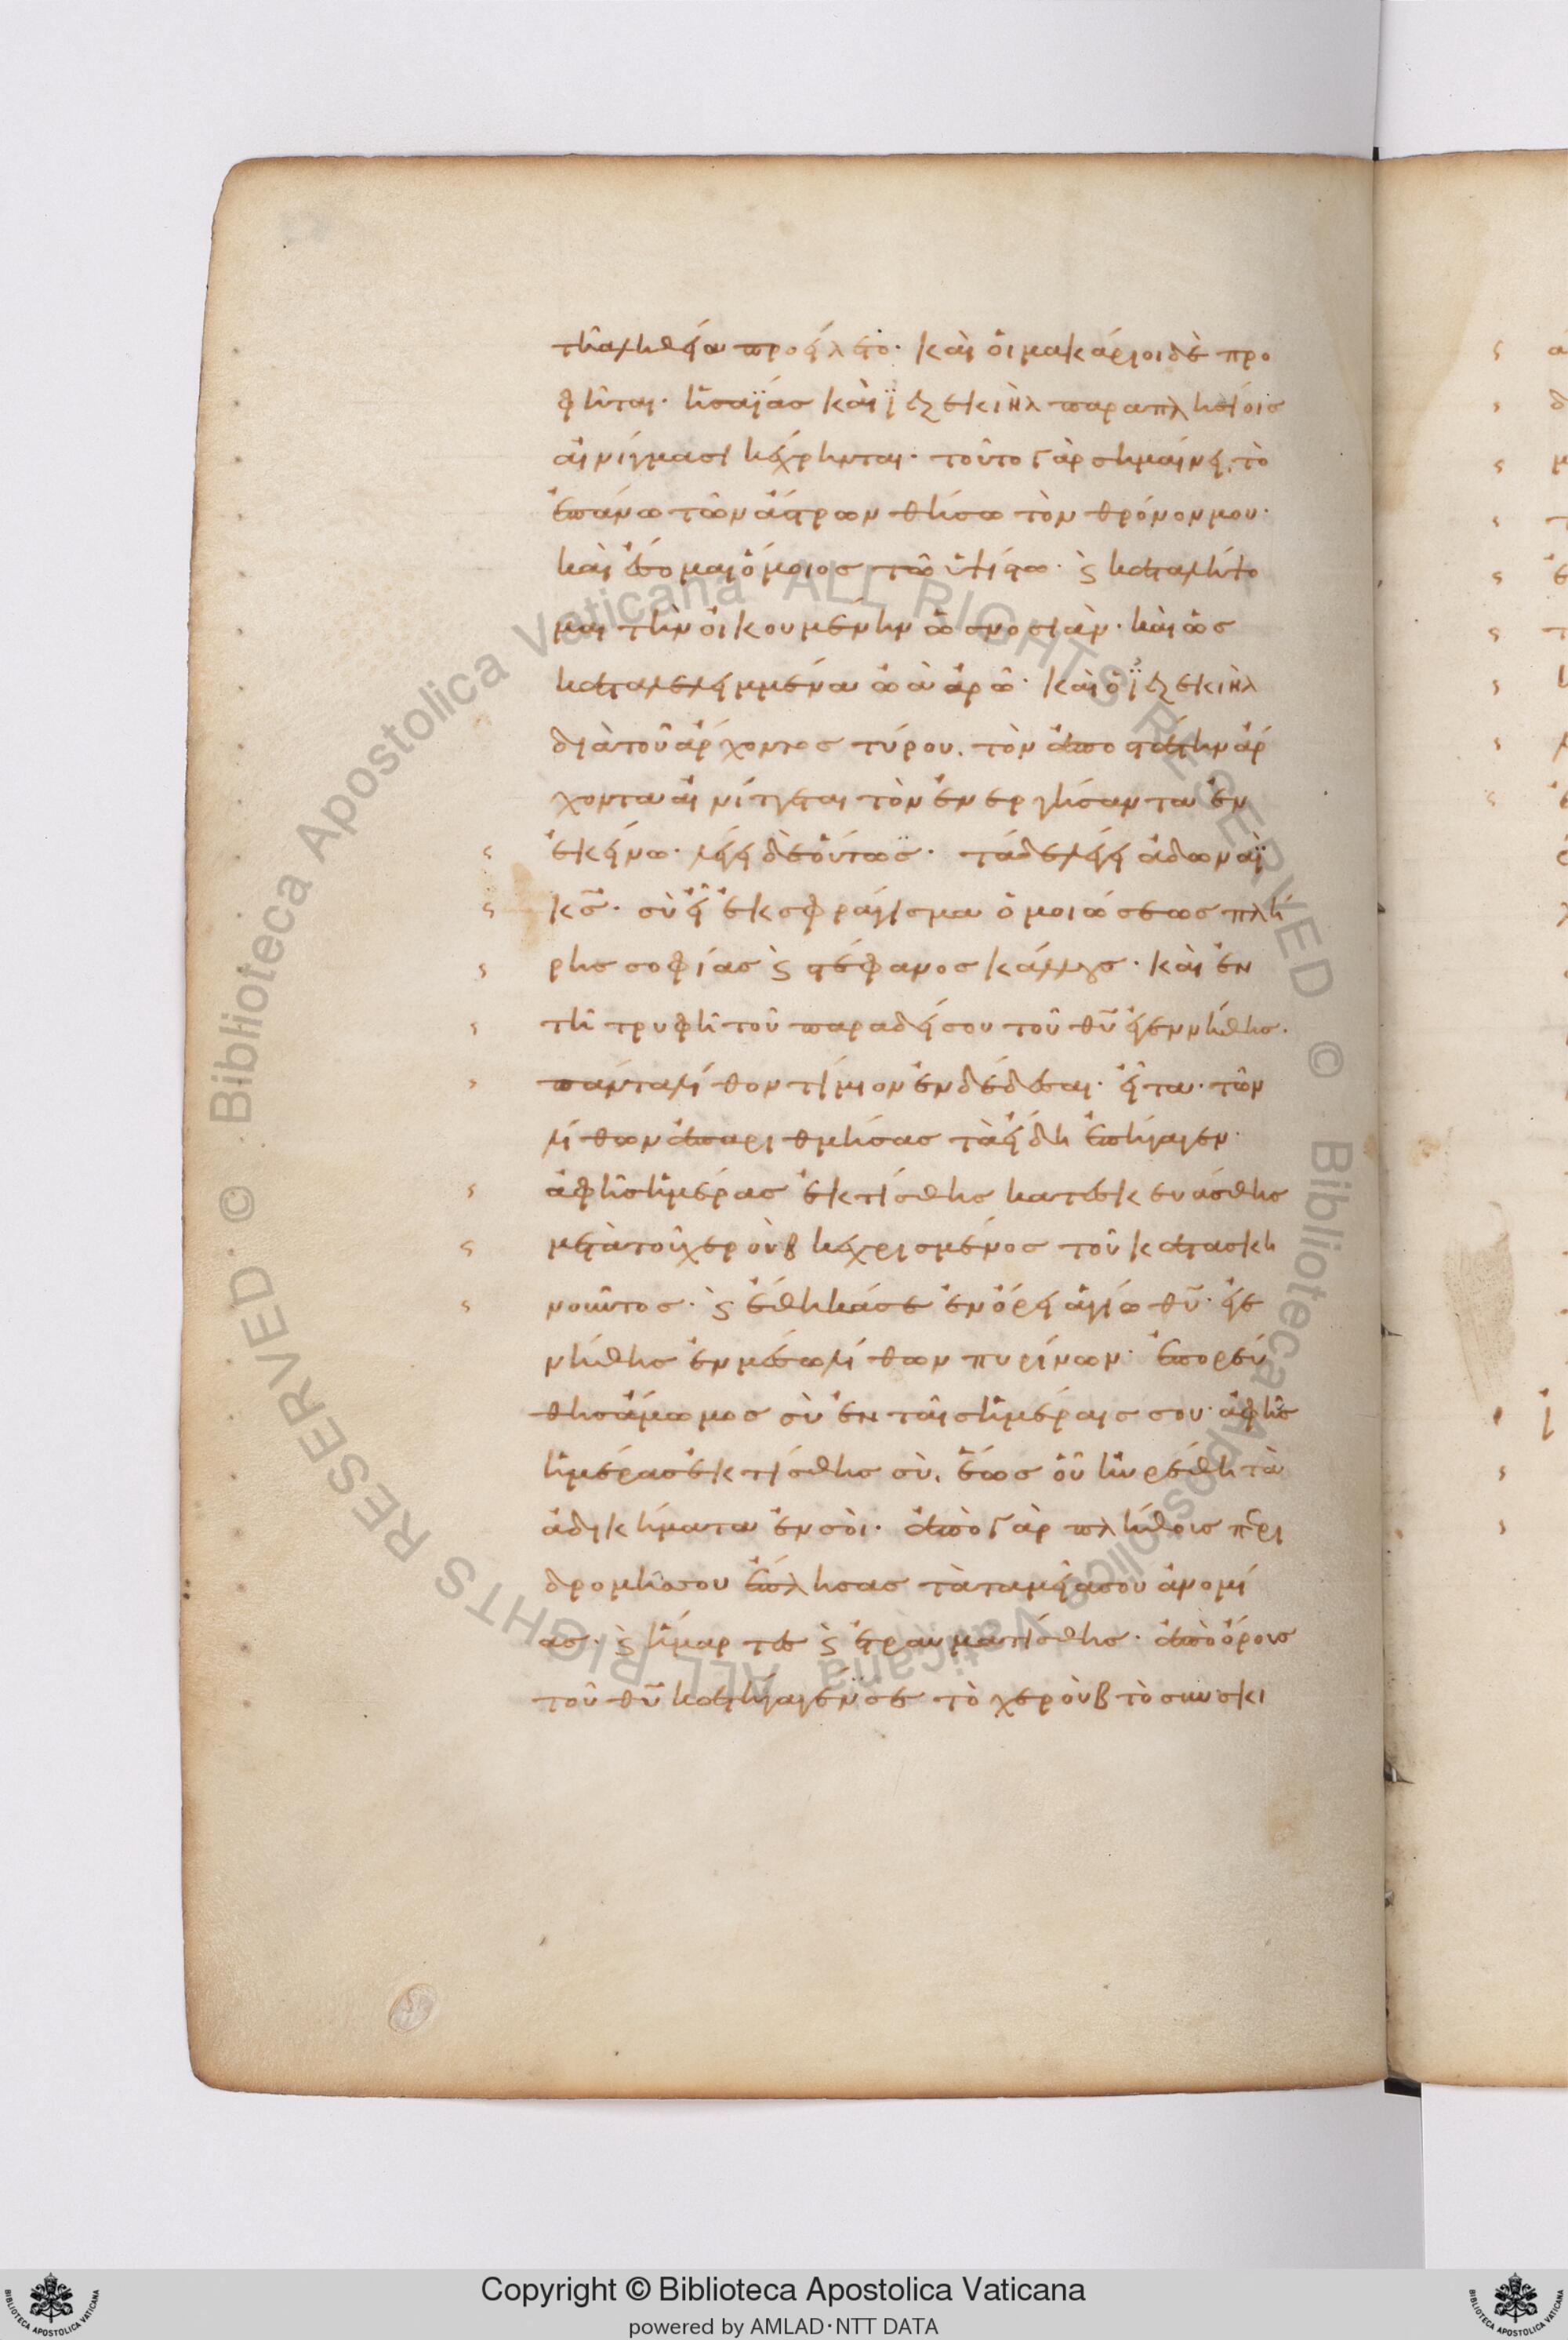 τῆ ἀληθεία προείλετο· καὶ οἱ μακάριοι δὲ προ
φῆται· ἡσαΐας καὶ ϊεζεκιὴλ παραπλησίοις
αἰνίγμασι κέχρηνται· τοῦτο γὰρ σημαίνει, τὸ
ἐπάνω τῶν ἄστρων θήσω τὸν θρόνον μου·
καὶ ἔσομαι ὅμοιος τῶ ὑψίστω· ϛ̀ καταλήψο
μαι τὴν οἰκουμένην ὡς νοσσιὰν· καὶ ὡς
καταλελειμμένα ὠὰ ἀρῶ· καὶ ὁ ϊεζεκιὴλ
διὰ τοῦ ἄρχοντος τύρου. τὸν ἀποστάτην ἄρ
χοντα αἰνίττεται τὸν ἐνεργήσαντα ἐν
ἐκείνω· λέγει δὲ οὕτως· τάδε λέγει ἀδωναῒ
κς̄· σὺ εἶ ἐκσφράγισμα ὁμοιώσεως πλή
ρης σοφίας ϛ̀ στέφανος κάλλους· καὶ ἐν
τῆ τρυφῆ τοῦ παραδείσου τοῦ θῡ ἐγεννήθης.
πάντα λίθον τίμιον ἐνδέδεσαι· εἶτα· τῶν
λίθων ἀπαριθμήσας τὰ εἴδη ἐπήγαγεν·
ἀφῆς ἡμέρας ἐκτίσθης κατεσκευάσθης
μετὰ τοῦ χεροὺβ κεχρισμένος τοῦ κατασκη
νοῦντος· ϛ̀ ἔθηκά σε ἐν ὄρει ἁγίω θῡ· ἐγε
νήθης ἐν μέσω λίθων πυρίνων· ἐπορεύ
θης ἄμωμος σὺ ἐν ταῖς ἡμέραις σου· ἀφῆς
ἡμέρας ἐκτίσθης σὺ. ἕως οὗ ηὑρέθη τὰ
ἀδικήματα ἐν σοὶ· ἀπὸ γὰρ πλήθους περι
δρομῆς σου ἔπλησας τὰ ταμεῖα σου ἀνομί
ας· ϛ̀ ἥμαρτες ϛ̀ ἐτραυματίσθης· ἀπὸ ὄρους
τοῦ θῡ κατήγαγέν σε τὸ χεροὺβ τὸ συσκι
Copyright © Biblioteca Apostolica Vaticana
powered by AMLAD·NTT DATA